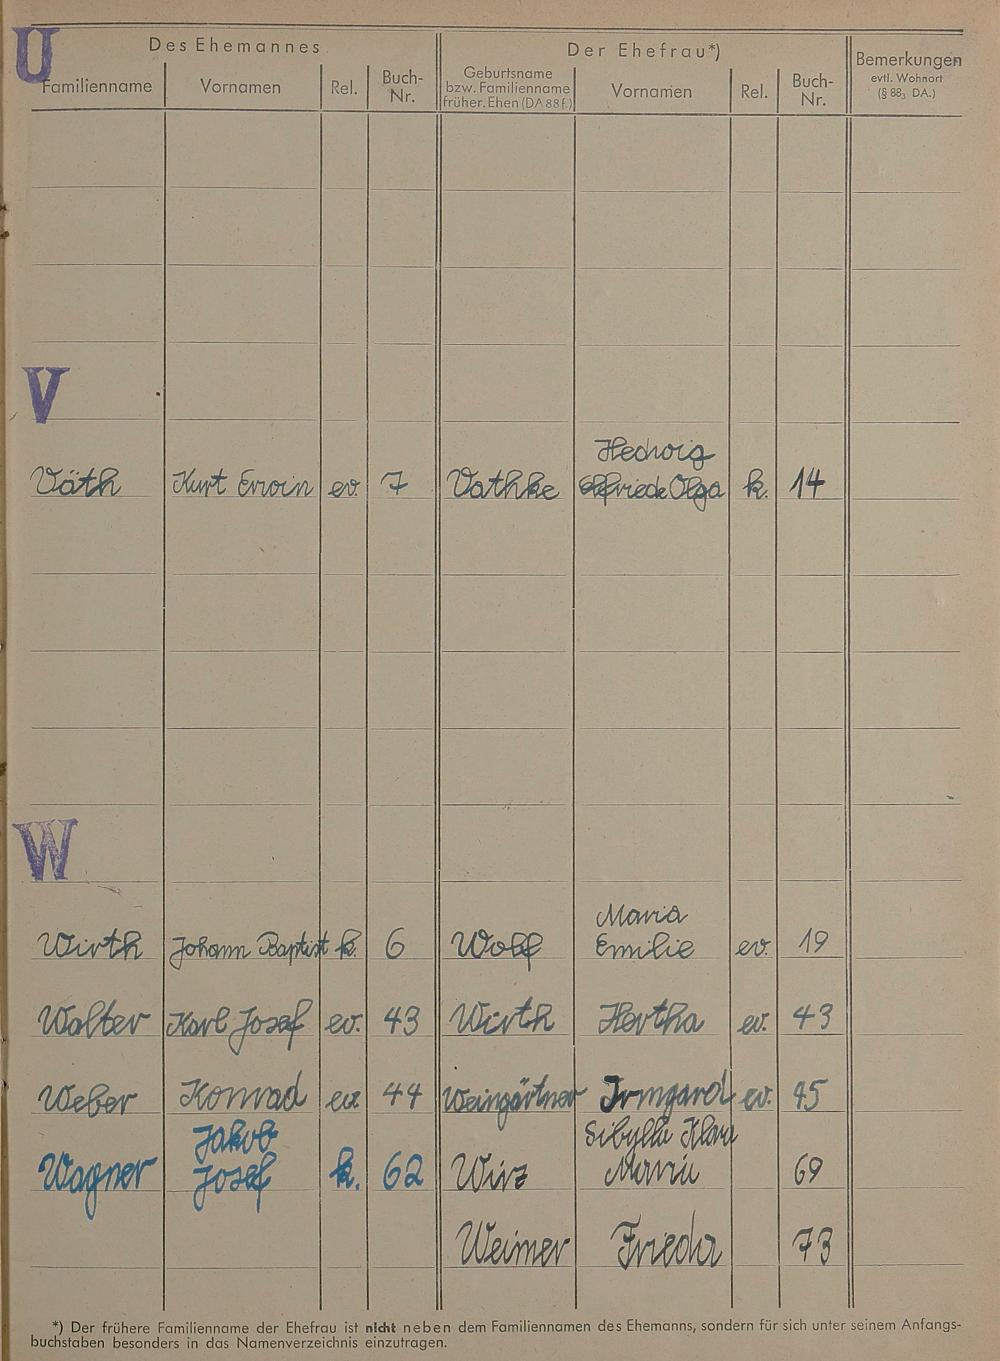 U
Des Ehemannes
Der Ehefrau*)
Bemerkungen
evtl. Wohnort
(§ 88₃ DA.)
Familienname
Vornamen
Rel.
Buch-
Nr.
Geburtsname
bzw. Familienname
früher. Ehen (DA 88 f.)
Vornamen
Rel.
Buch-
Nr.
V
Hedwig
Väth Kurt Erwin ev. 7 Vathke Elfriede Olga k. 14
W
Maria
Wirth Johann Baptist k. 6 Wolf Emilie ev. 19
Walter Karl Josef ev. 43 Wirth Hertha ev. 43
Weber Konrad ev. 44 Weingärtner Irmgard ev. 45
Jakob Sibylla Klara
Wagner Josef k. 62 Wirz Maria 69
Weimer Frieda 73
*) Der frühere Familienname der Ehefrau ist nicht neben dem Familiennamen des Ehemanns, sondern für sich unter seinem Anfangs-
buchstaben besonders in das Namenverzeichnis einzutragen.